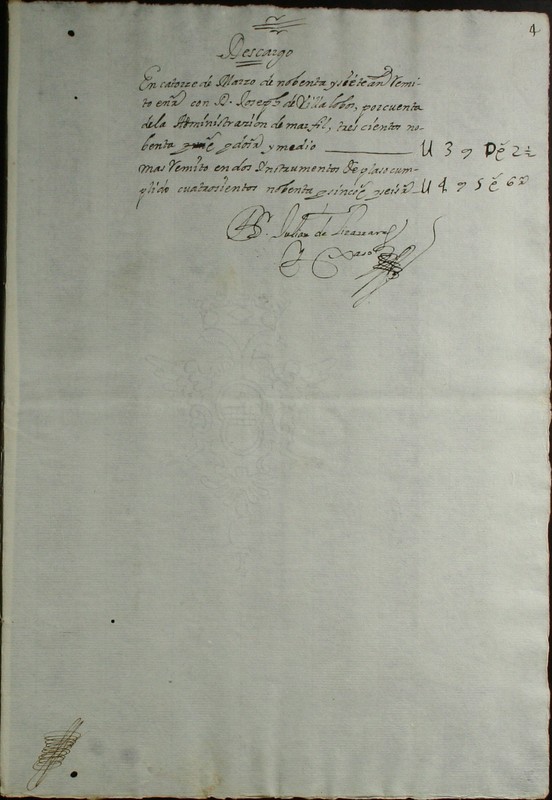 4
Descargo
En catorze de Marzo de nobenta y siete años Remi-
to en con D. Joseph de Villalobos, por cuenta
de la Administrazion de marfil, tres cientos no-
benta y medio U 3 9 2 ½
mas Remito en dos Instrumentos de plaso cum-
plido cuatrosientos nobenta y sinco y seis U 4 9 5 6
D. Julian de
y